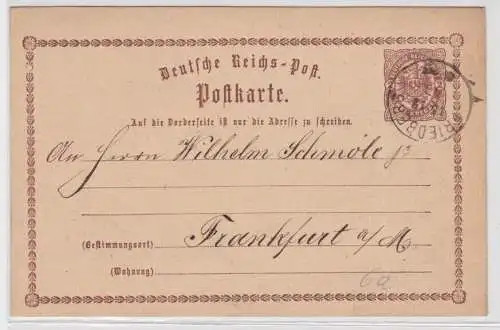 Deutsche Reichs-Post.
Postkarte.
Auf die Vorderseite ist nur die Adresse zu schreiben.
An Herrn Wilhelm Schmöle jr
Frankfurt a/M.
(Bestimmungsort)
(Wohnung)